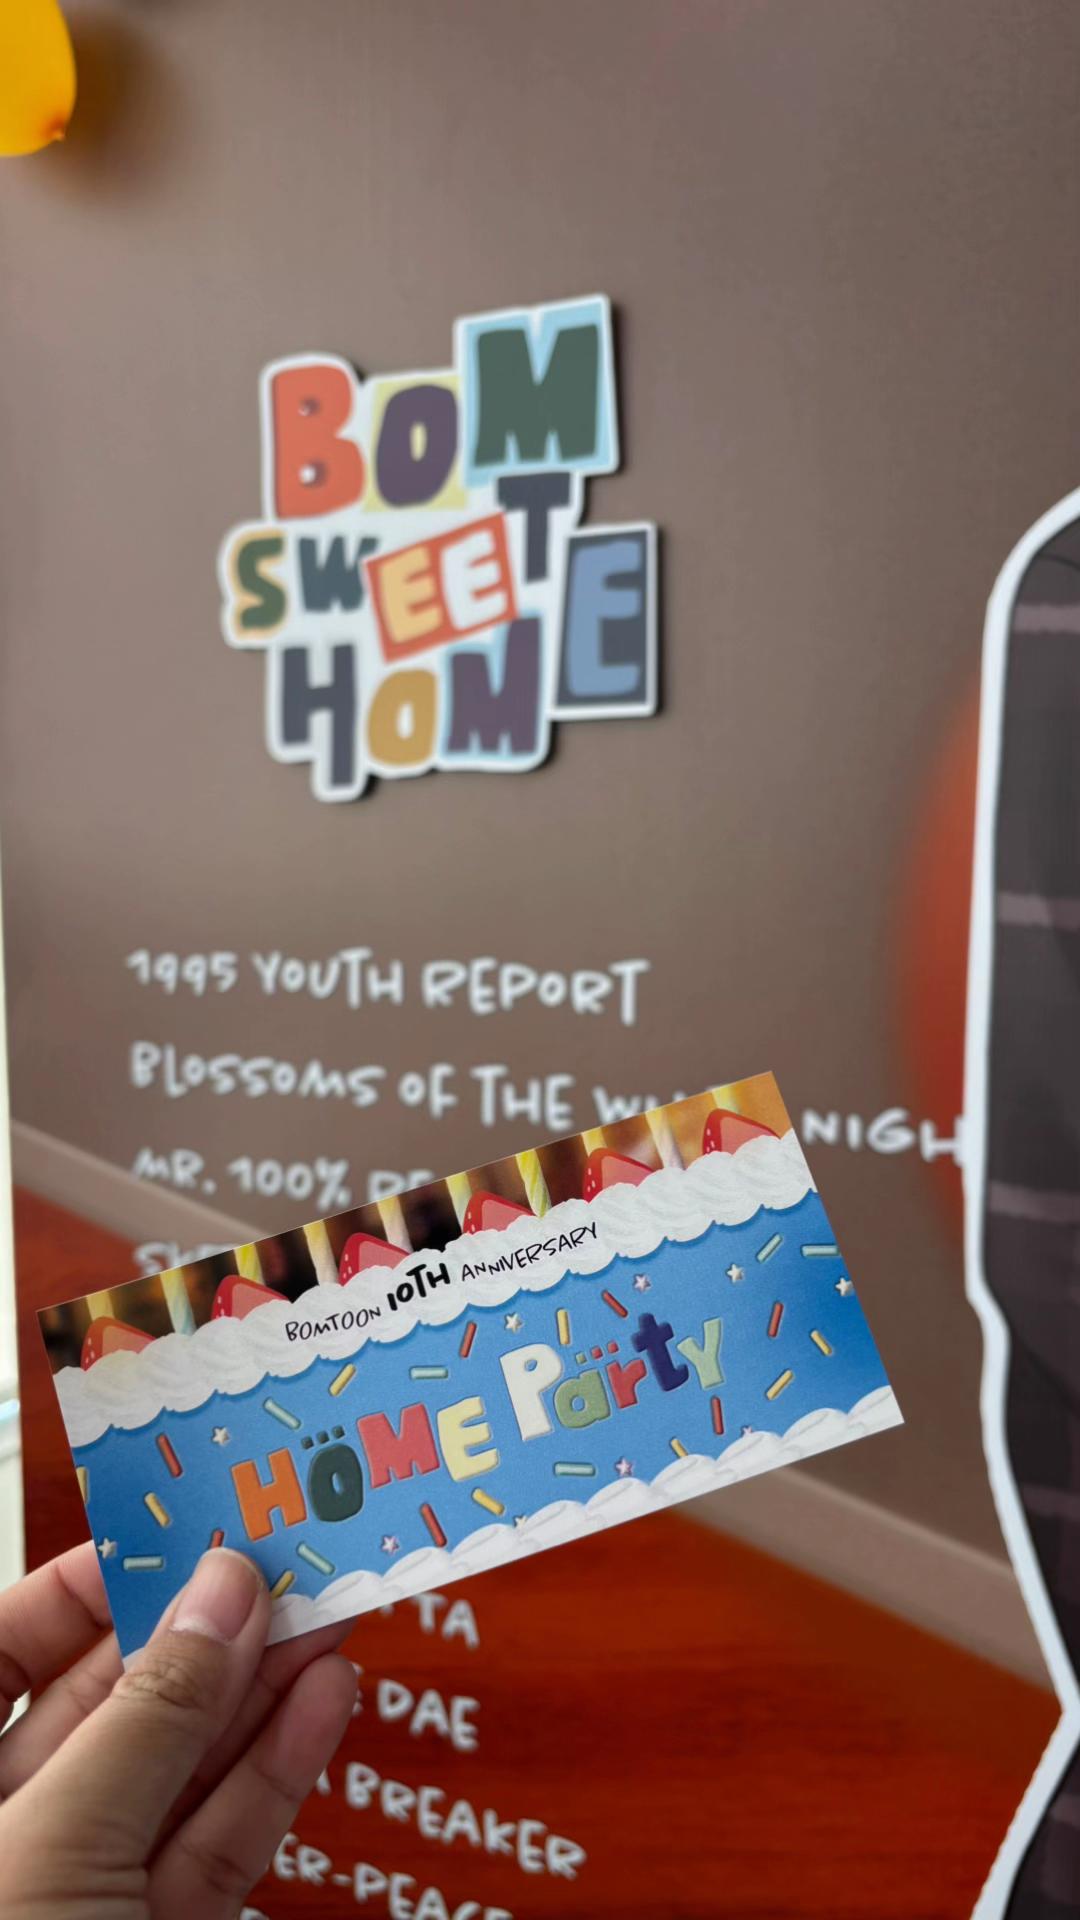 BOM
SWEET
HOME
1995 YOUTH REPORT
BLOSSOMS OF THE NIGH
MR. 100%
BOMTOON 10TH ANNIVERSARY
HOME Party
TA
DAE
BREAKER
ER-PEACE